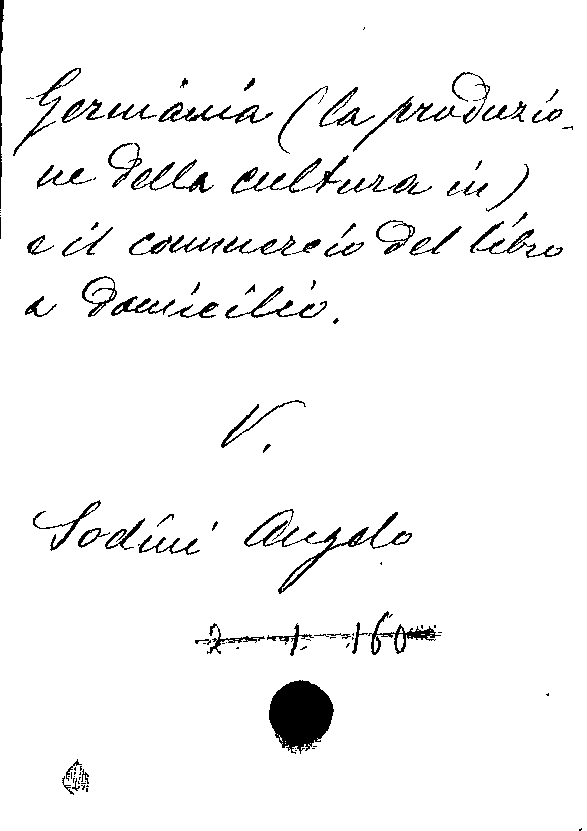 Germania (la produzio-
ne della cultura in)
e il commercio del libro
a domicilio.
V.
Sodini Angelo
2. 1. 160